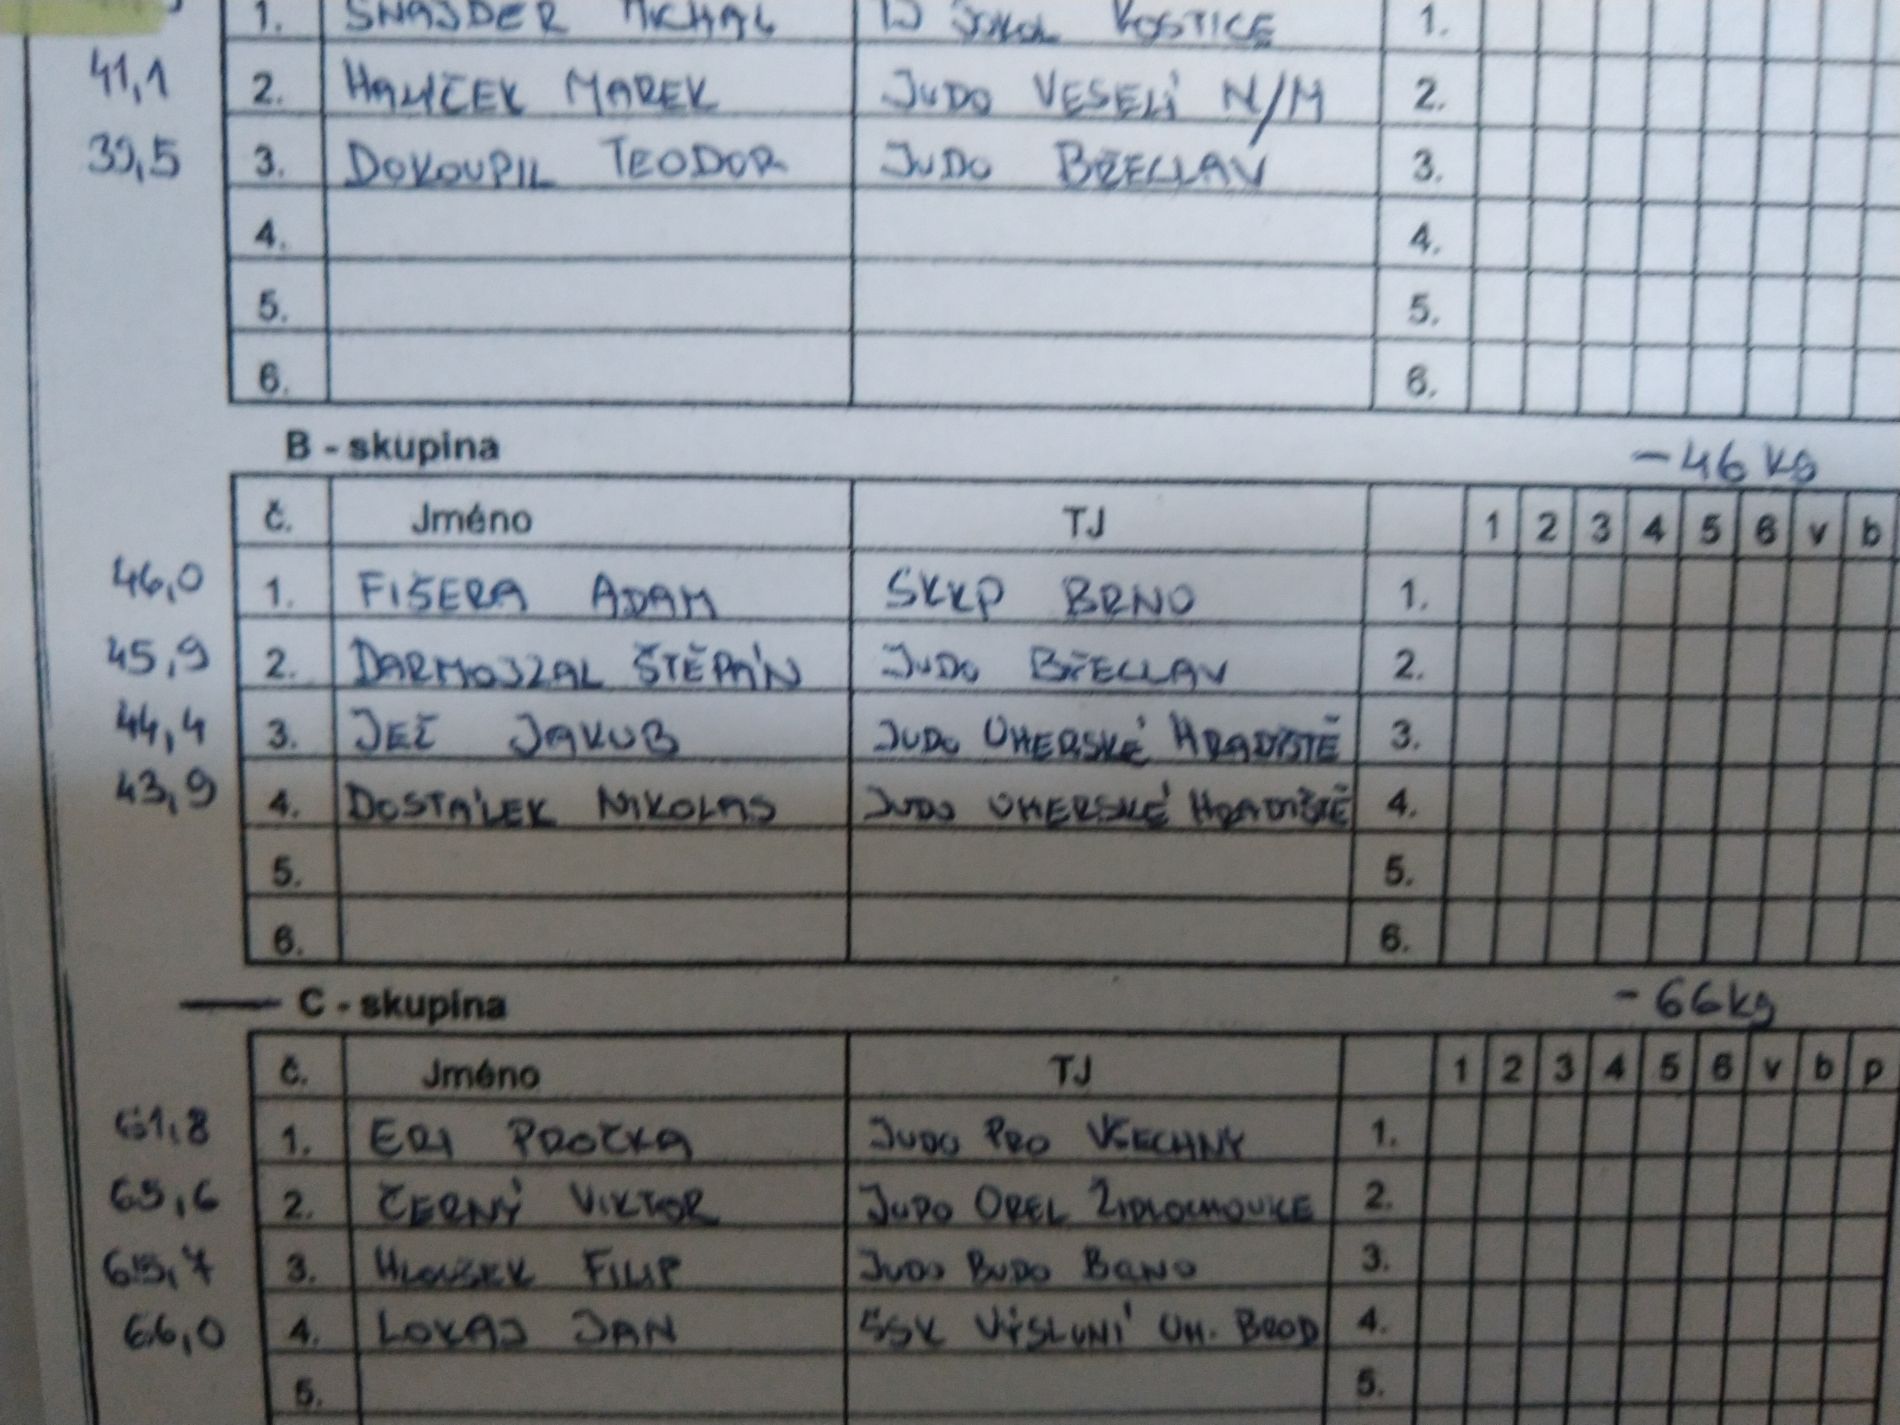 1. ŠNAJDER MICHAL TJ SOKOL KOSTICE 1.
41,1 2. MAREK JUDO VESELÍ N/M 2.
39,5 3. DOKOUPIL TEODOR JUDO BŘECLAV 3.
4. 4.
5. 5.
6. 6.
B - skupina -46 kg
č. Jméno TJ 1 2 3 4 5 6 v b
46,0 1. FIŠERA ADAM SKKP BRNO 1.
45,9 2. DARMOJZAL ŠTĚPÁN JUDO BŘECLAV 2.
44,4 3. JEŽ JAKUB JUDO UHERSKÉ HRADIŠTĚ 3.
43,9 4. DOSTÁLEK NIKOLAS JUDO UHERSKÉ HRADIŠTĚ 4.
5. 5.
6. 6.
C - skupina -66 kg
č. Jméno TJ 1 2 3 4 5 6 v b p
61,8 1. ERI PROČKA JUDO PRO VŠECHNY 1.
65,6 2. ČERNÝ VIKTOR JUDO OREL ŽIDLOCHOVICE 2.
65,7 3. HLOUŠEK FILIP JUDO BUDO BRNO 3.
66,0 4. LOKAJ JAN SSK VÝSLUNÍ UH. BROD 4.
5. 5.